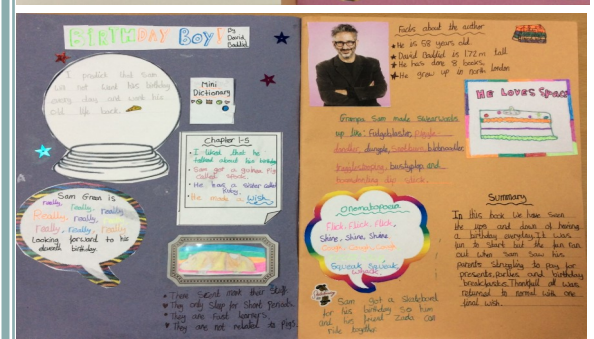 BIRTHDAY BOY!
By
David
Baddiel
I predict that Sam
will not want his birthday
every day and want his
old life back.
Mini
Dictionary
Chapter 1-5
I liked that he
talked about his birthday
Sam got a guinea pig
called Spock.
He has a sister called
Ruby.
He made a wish.
Sam Green is
really, really,
Really, really, really
Really, really, really
Looking forward to his
eleventh birthday.
They Secret mark their Stuff.
They only Sleep for Short Periods.
They are Fast learners.
They are not related to Pigs.
Facts about the author
He is 58 years old.
David Baddiel is 1.72m tall
He has done 8 books.
He grew up in north London
He LOVES Space
Grandpa Sam made Swearwords
up like:
bustyplop, and
Onomatopoeia
Flick, Flick, Flick,
Shine, Shine, Shine
Cough, Cough, Cough
Squeak, Squeak,
Sam got a Skateboard
for his birthday So him
and his friend Zada can
ride together.
Summary
In this book we have Seen
the ups and downs of having
a birthday everyday. It was
fun to start but the fun ran
out when Sam Saw his
parents Struggling to pay for
presents, parties and birthday
breakfasts. Thankfull all was
returned to normal with one
final wish.